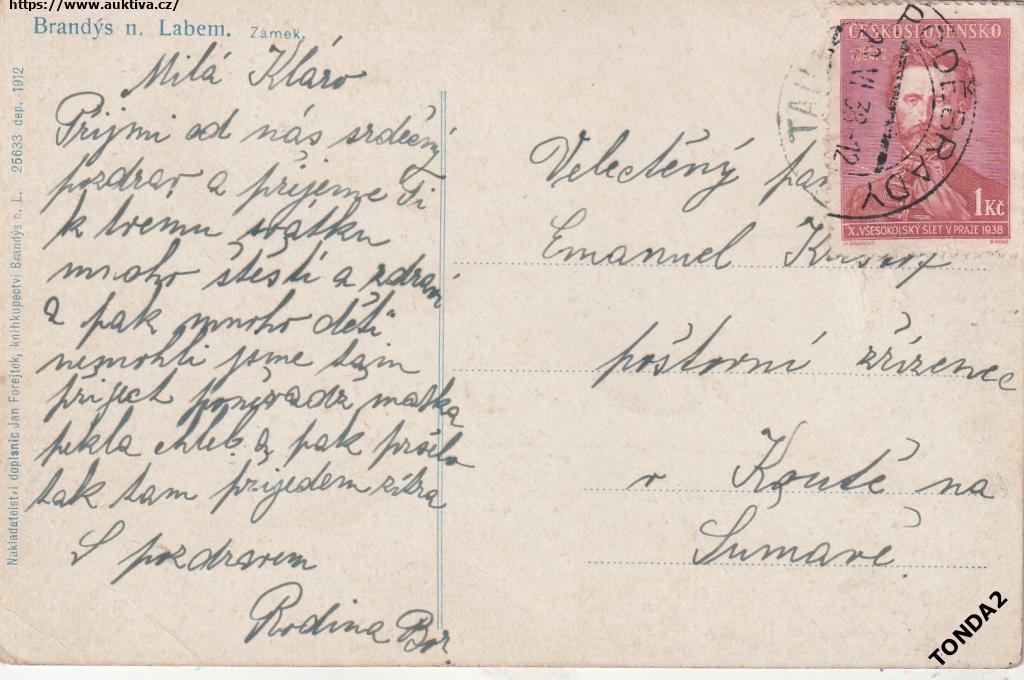 https://www.auktiva.cz/
Brandýs n. Labem. Zámek.
Milá Kláro
Přijmi od nás srdečný
pozdrav a přijeme Ti
k tvemu svátku
mnoho štěstí a zdraví
a pak mnoho děti
nemohli jsme tam
přiject poněvadž matka
pekla chleb a pak pršelo
tak tam přijedem zítra
S pozdravem
Rodina Bor
Nakladatelství dopisnic Jan Forejtek, knihkupectví Brandýs n. L. 25633 dep. 1912
ČESKOSLOVENSKO
1 Kč
X. VŠESOKOLSKÝ SLET V PRAZE 1938
PODĚBRADY
Velectěný pan
Emanuel
poštovní zřízenec
v Koutě na
Šumavě
TONDA2